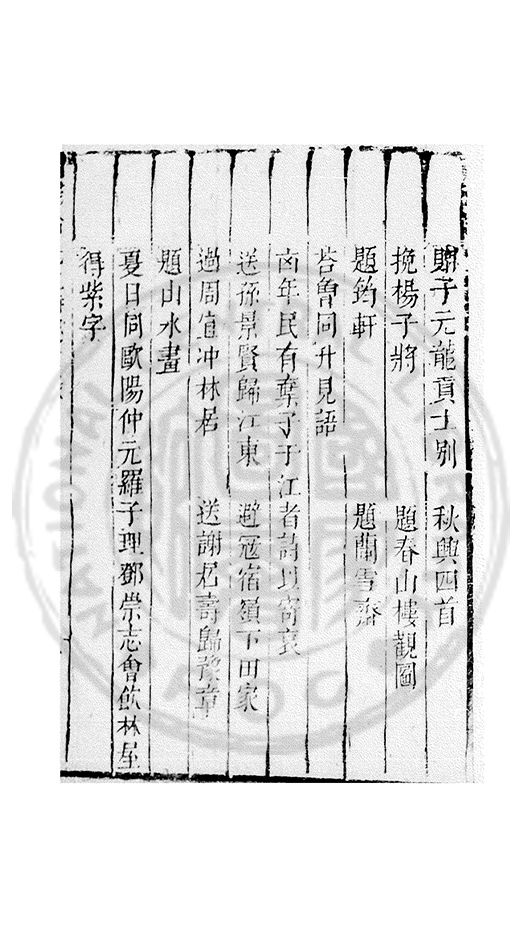 子元龍貢士別　秋興四首
挽楊子將　題春山樓觀圖
題鈞軒　題蘭雪齋
荅魯同升見語
丙年民有棄子于江者詩以寄哀
送孫景賢歸江東　避寇宿嶺下田家
過周直冲林居　送謝君壽歸豫章
題山水畫
夏日同歐陽仲元羅子理鄧崇志會飲林屋
得紫字